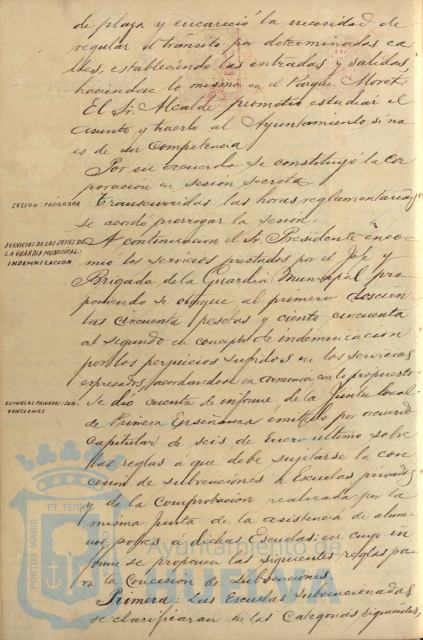 de plaza y encareció la necesidad de
regular el tránsito por determinadas ca
lles, estableciendo las entradas y salidas,
haciéndose lo mismo en el Parque Moret.
El Sr. Alcalde prometió estudiar el
asunto y traerlo al Ayuntamiento si no
es de su competencia
Por su acuerdo se constituyó la Cor
poracion en sesión secreta.
SESION: PRÓRROGA
Transcurridas las horas reglamentarias
se acordó prorrogar la sesion.
SERVICIOS DE LOS JEFES DE
LA GUARDIA MUNICIPAL:
INDEMNIZACION
A continuacion el Sr. Presidente enco
mió los servicios prestados por el Jefe y
Brigada de la Guardia Municipal pro
poniendo se otorgue al primero doscien
tas cincuenta pesetas y ciento cincuenta
al segundo en concepto de indemnizacion
por los perjuicios sufridos en los servicios
expresados, acordandose en armonia con lo propuesto.
ESCUELAS PRIVADAS: SUB-
VENCIONES
Se dió cuenta de informe de la Junta Local
de Primera Enseñanza emitido por acuerdo
capitular de seis de Enero ultimo sobre
las reglas á que debe sujetarse la con
cesion de subvenciones á Escuelas privadas
y de la comprobacion realizada por la
misma Junta de la asistencia de alum
nos pobres á dichas Escuelas; en cuyo in
forme se proponen las siguientes reglas pa
ra la Concesion de Subvenciones.
Primera: Las Escuelas subvencionadas
se clasificarán en las Categorias siguientes;
ET TERRÆ
PORTUS MARIS
Ayuntamiento de